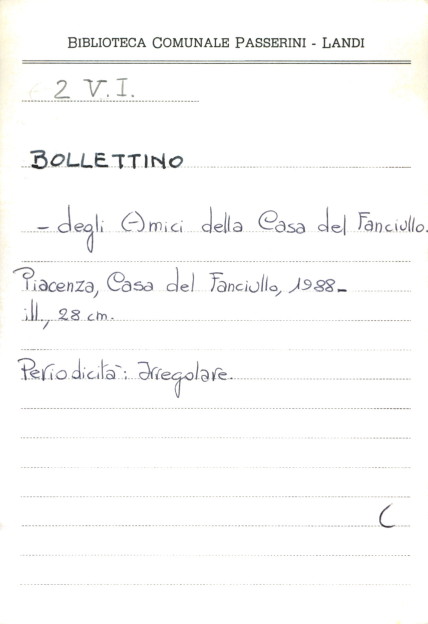 BIBLIOTECA COMUNALE PASSERINI - LANDI
2 V.I.
BOLLETTINO
- degli Amici della Casa del Fanciullo.
Piacenza, Casa del Fanciullo, 1988-
ill., 28 cm.
Periodicità: Irregolare.
C